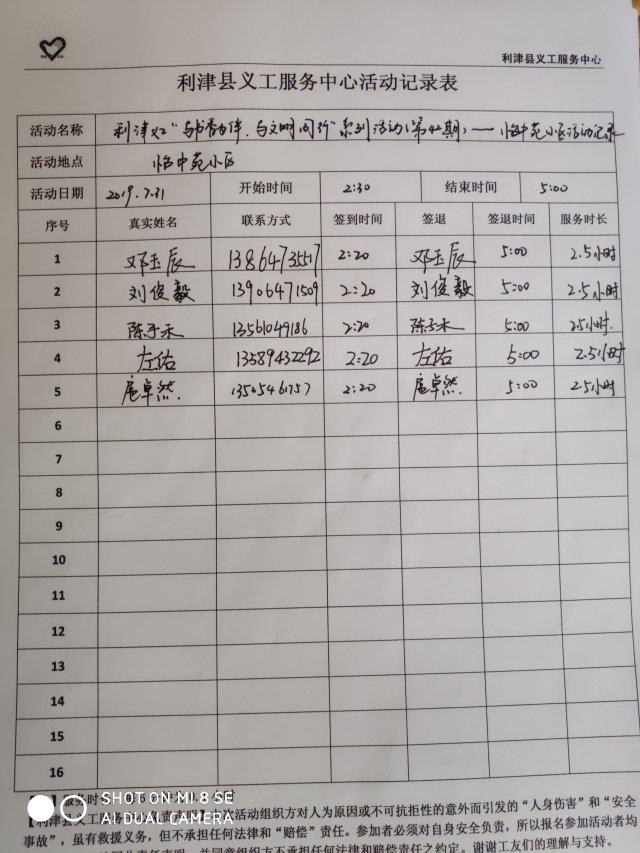 利津县义工服务中心
利津县义工服务中心活动记录表
活动名称 利津义工"与书香为伴、与文明同行"系列活动(第42期)——怡中苑小区活动记录
活动地点 怡中苑小区
活动日期 2019.7.31 开始时间 2:30 结束时间 5:00
序号 真实姓名 联系方式 签到时间 签退 签退时间 服务时长
1 邓玉辰 13864735517 2:20 邓玉辰 5:00 2.5小时
2 刘俊毅 13906471509 2:20 刘俊毅 5:00 2.5小时
3 陈子禾 13561049186 2:20 陈子禾 5:00 2.5小时.
4 左佑 13589432292 2:20 左佑 5:00 2.5小时
5 扈卓然. 13505461757 2:20 扈卓然. 5:00 2.5小时
6
7
8
9
10
11
12
13
14
15
16
SHOT ON MI 8 SE
AI DUAL CAMERA
【利津县义工服务 本次活动组织方对人为原因或不可抗拒性的意外而引发的“人身伤害”和“安全
事故”，虽有救援义务，但不承担任何法律和“赔偿”责任。参加者必须对自身安全负责，所以报名参加活动者均
并同意组织方不承担任何法律和赔偿责任之约定。谢谢工友们的理解与支持。